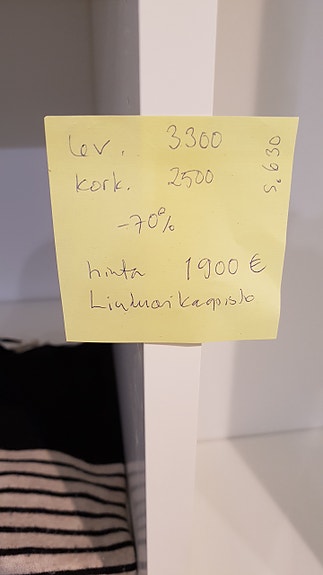 lev. 3300
kork. 2500
s. 630
-70%
hinta 1900 €
Liukuovikaapisto